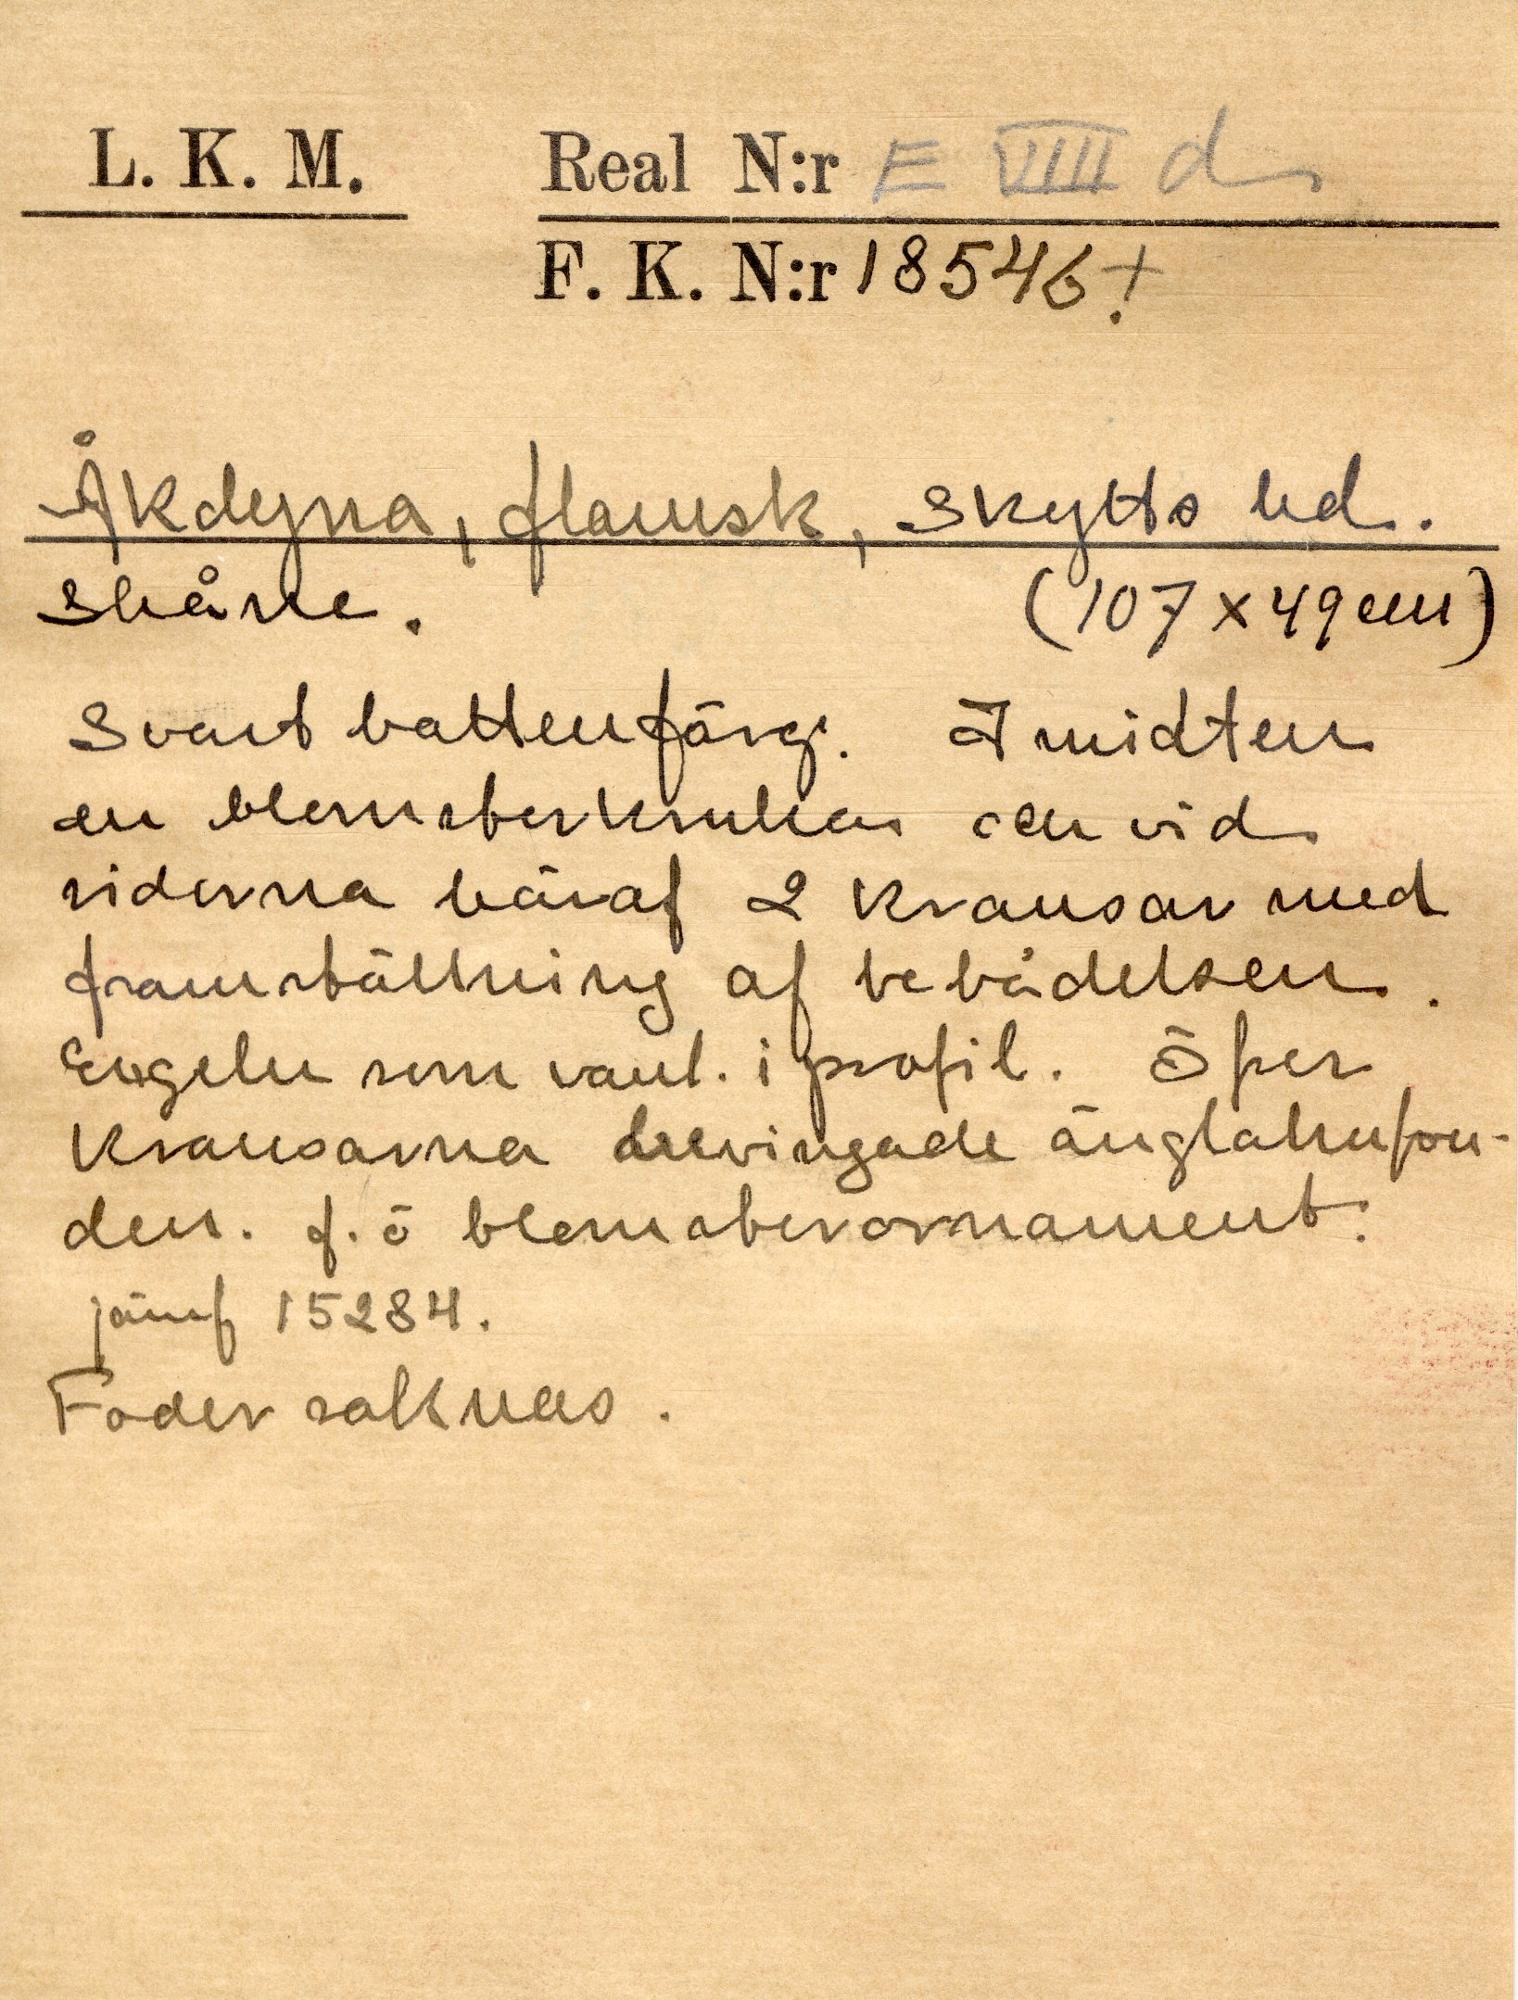 L. K. M. Real N:r E VIII d
F. K. N:r 18546+.
Åkdyna, flamsk, Skytts hd.
Skåne. (107 x 49 cm)
Svart bottenfärg. I midten
en blomsterkruka och vid
siderna häraf 2 kransar med
framställning af bebådelsen.
Engeln som vanl. i profil. Öfver
kransarna bevingade änglahufvu-
den. f. ö blomsterornament.
jämf 15284.
Foder saknas.